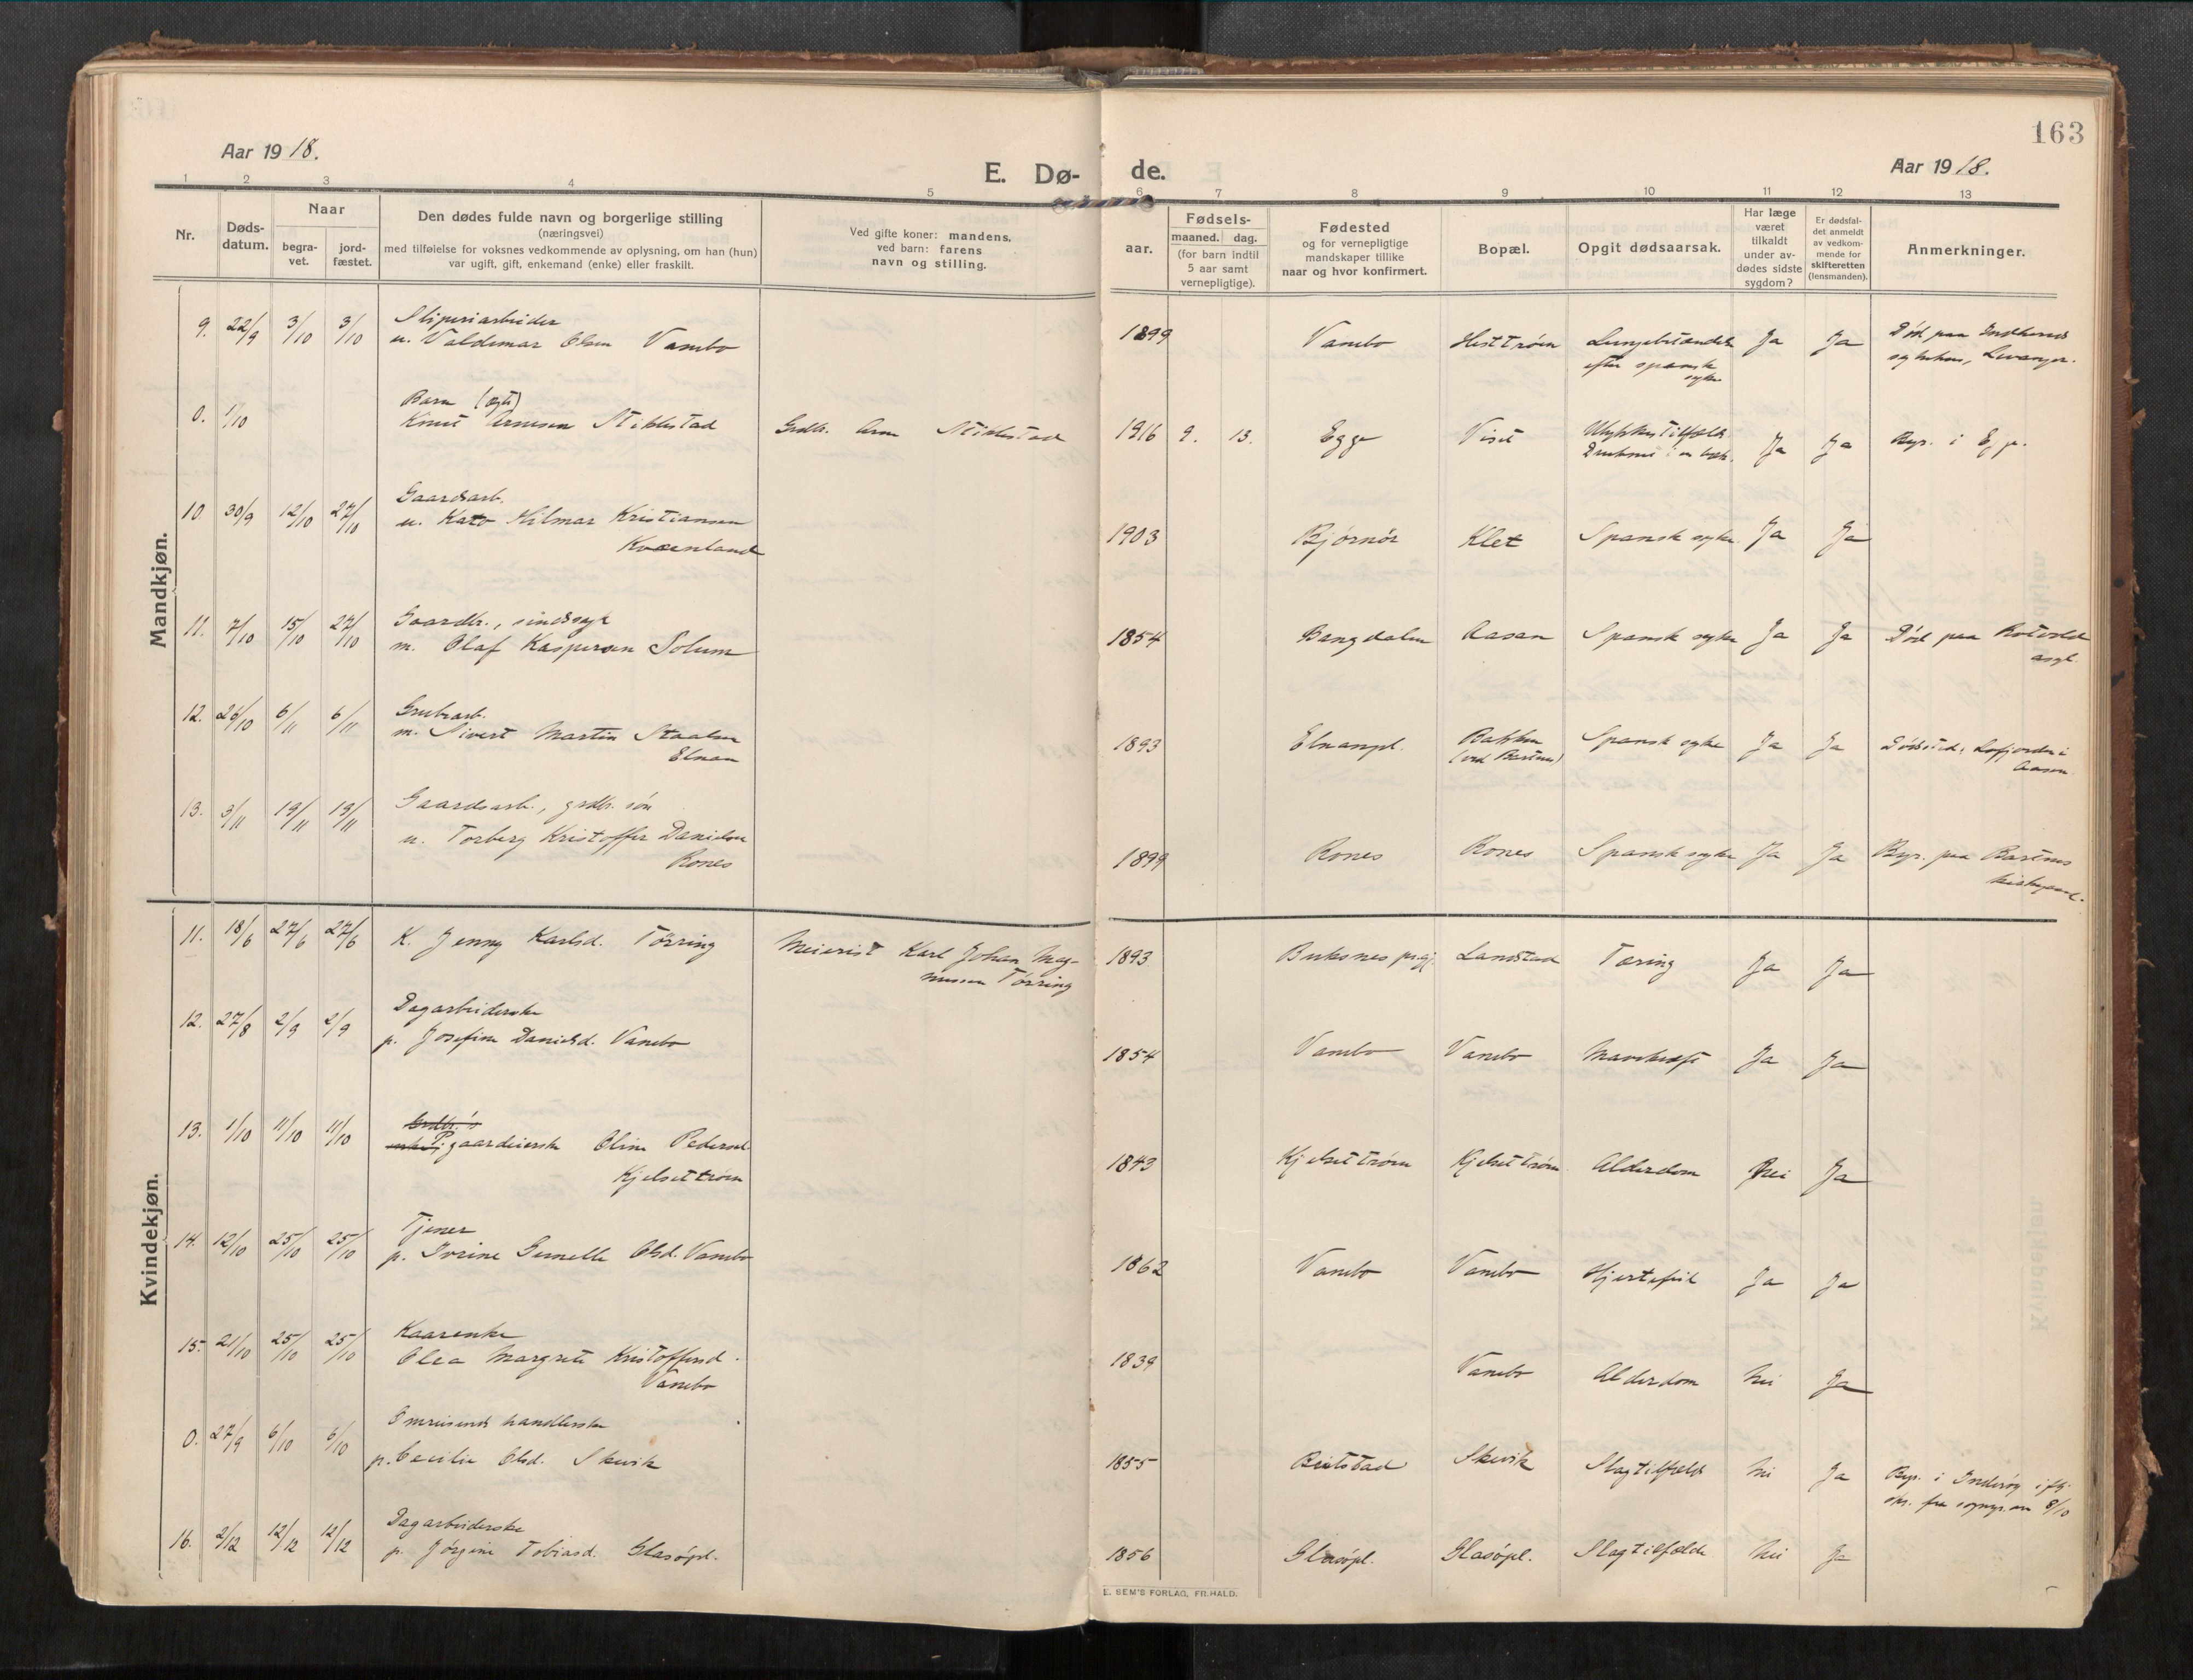 163
Aar 1918.
E. Dø- de.
Aar 1918.
1 2 3 4 5 6 7 8 9 10 11 12 13
Nr.
Døds-
datum.
Naar
begra-
vet.
jord-
fæstet.
Den dødes fulde navn og borgerlige stilling
(næringsvei)
med tilføielse for voksnes vedkommende av oplysning, om han (hun)
var ugift, gift, enkemand (enke) eller fraskilt.
Ved gifte koner: mandens,
ved barn: farens
navn og stilling.
aar.
Fødsels-
maaned. dag.
(for barn indtil
5 aar samt
vernepligtige).
Fødested
og for vernepligtige
mandskaper tillike
naar og hvor konfirmert.
Bopæl.
Opgit dødsaarsak.
Har læge
været
tilkaldt
under av-
dødes sidste
sygdom?
Er dødsfal-
det anmeldt
av vedkom-
mende for
skifteretten
(lensmanden).
Anmerkninger.
Mandkjøn.
Sliperiarbeider
9. 22/9 3/10 3/10 u. Valdemar Olsen Vanebo 1899 Vanebo Hesttrøen Lungebetændelse Ja Ja Død paa Indherreds
efter spansk syke sykehus, Levanger.
Barn (egte)
0. 1/10 Knut Arnesen Stiklestad Grdbr. Arne Stiklestad 1916 9. 13. Egge Viset Ulykkestilfæld. Ja Ja Begr. i Egge.
Druknet i en bæk.
Gaardsarb.
10. 30/9 12/10 27/10 u. Kato Hilmar Kristiansen 1903 Bjørnør Klet Spansk syke Ja Ja
Kvernland
Gaardbr., sindssyk
11. 7/10 15/10 27/10 m. Olaf Kaspersen Solum 1854 Bangdalen Aasan Spansk syke Ja Ja Død paa Rotvold
asyl.
Grubearb.
12. 26/10 6/11 6/11 m. Sivert Martin Staalsen 1893 Elnanpl. Bakken Spansk syke Ja Ja Dødsted: Lofjorden i
Elnan (ved Bartnes) Aasen.
Gaardsarb., grdbr. søn
13. 3/11 19/11 19/11 u. Torberg Kristoffer Danielsen 1899 Rones Rones Spansk syke Ja Ja Begr. paa Bartnes
Rones kirkegaard.
Kvindekjøn.
11. 18/6 27/6 27/6 K. Jenny Karlsd. Tørring Meierist Karl Johan Mag- 1893 Buksnes prgj. Landstad Tæring Ja Ja
nussen Tørring
Dagarbeiderske
12. 27/8 2/9 2/9 p. Josefine Danielsd. Vanebo 1854 Vanebo Vanebo Mavekræft Ja Ja
Grdbr.'s
13. 1/10 11/10 11/10 enke P. gaardeierske Oline Pedersd. 1843 Kjelsettrøen Kjelsettrøen Alderdom Nei Ja
Kjelsettrøen
Tjener
14. 12/10 25/10 25/10 p. Ivrine Gunelle Olsd. Vanebo 1862 Vanebo Vanebo Hjertefeil Ja Ja
Kaarenke
15. 21/10 25/10 25/10 Olea Margrete Kristoffersd. 1839 Vanebo Alderdom Nei Ja
Vanebo
Omreisende handlerske
0. 27/9 6/10 6/10 p. Cecilie Olsd. Skevik 1855 Beitstad Skevik Slagtilfælde Nei Ja Begr. i Inderøy iflg.
skr. fra sognepr. av 8/10
Dagarbeiderske
16. 2/12 12/12 12/12 p. Jørgine Tobiasd. Glasøpl. 1856 Glasøpl. Glasøpl. Slagtilfælde Nei Ja
E. SEM'S FORLAG, FR.HALD.